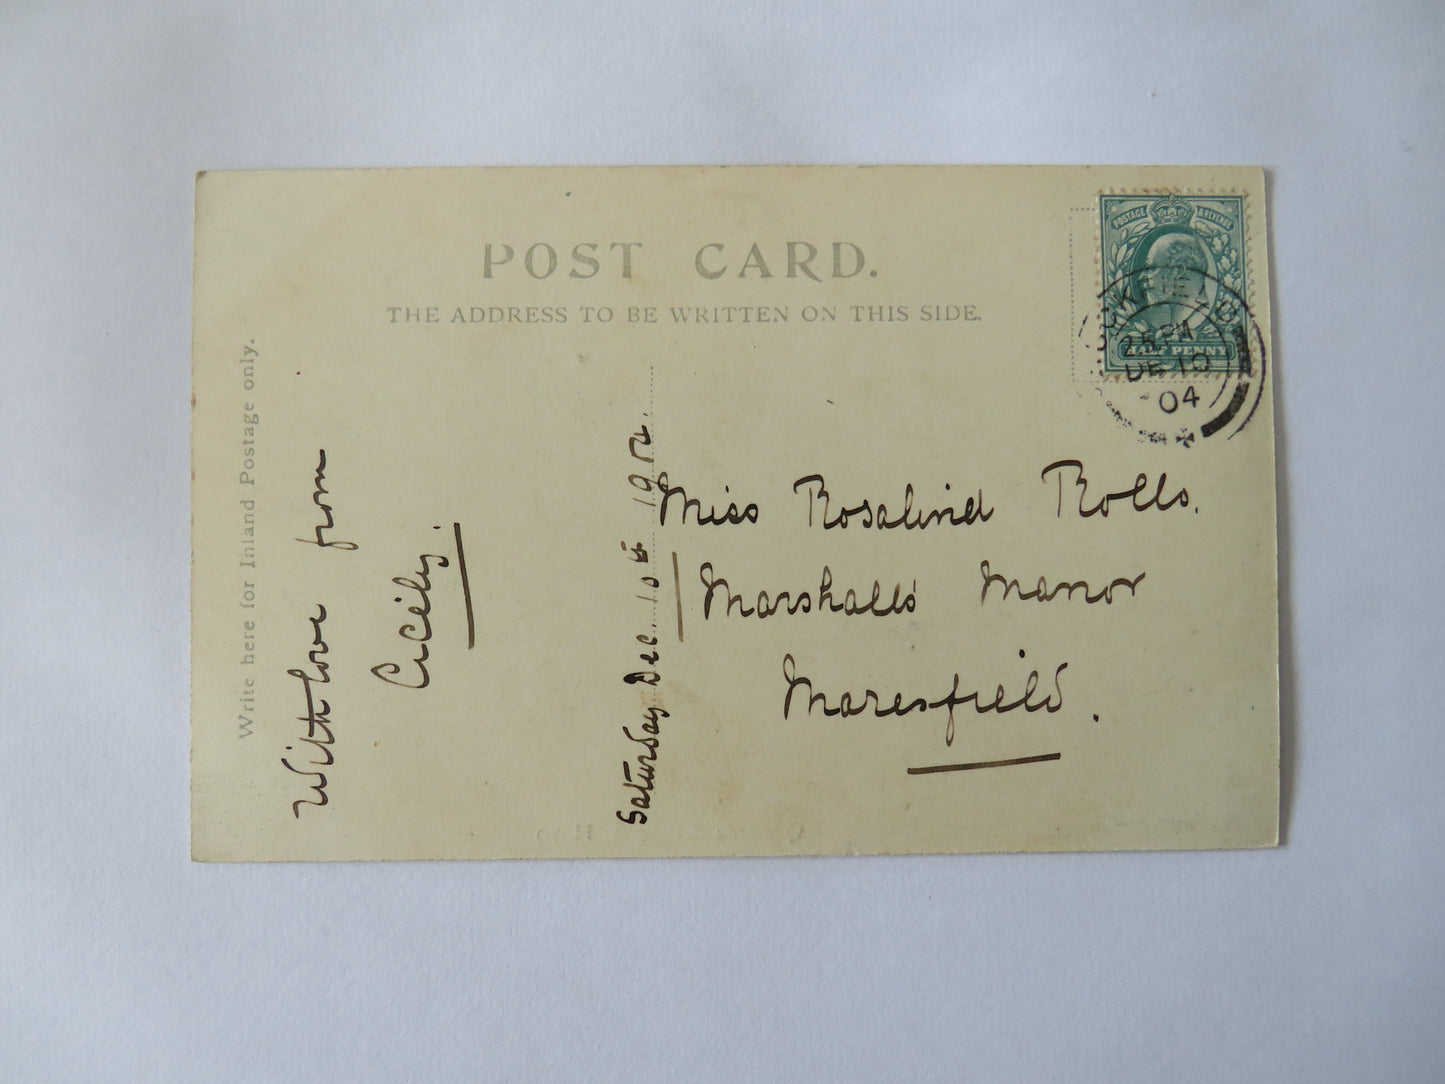 POST CARD.
THE ADDRESS TO BE WRITTEN ON THIS SIDE.
Write here for Inland Postage only.
With love from
Cicely.
Saturday Dec. 10th 1904.
Miss Rosalind Rolls.
Marshalls Manor
Maresfield.
POSTAGE & REVENUE
HALF PENNY
UCKFIELD
2 5 PM
DE 10
04